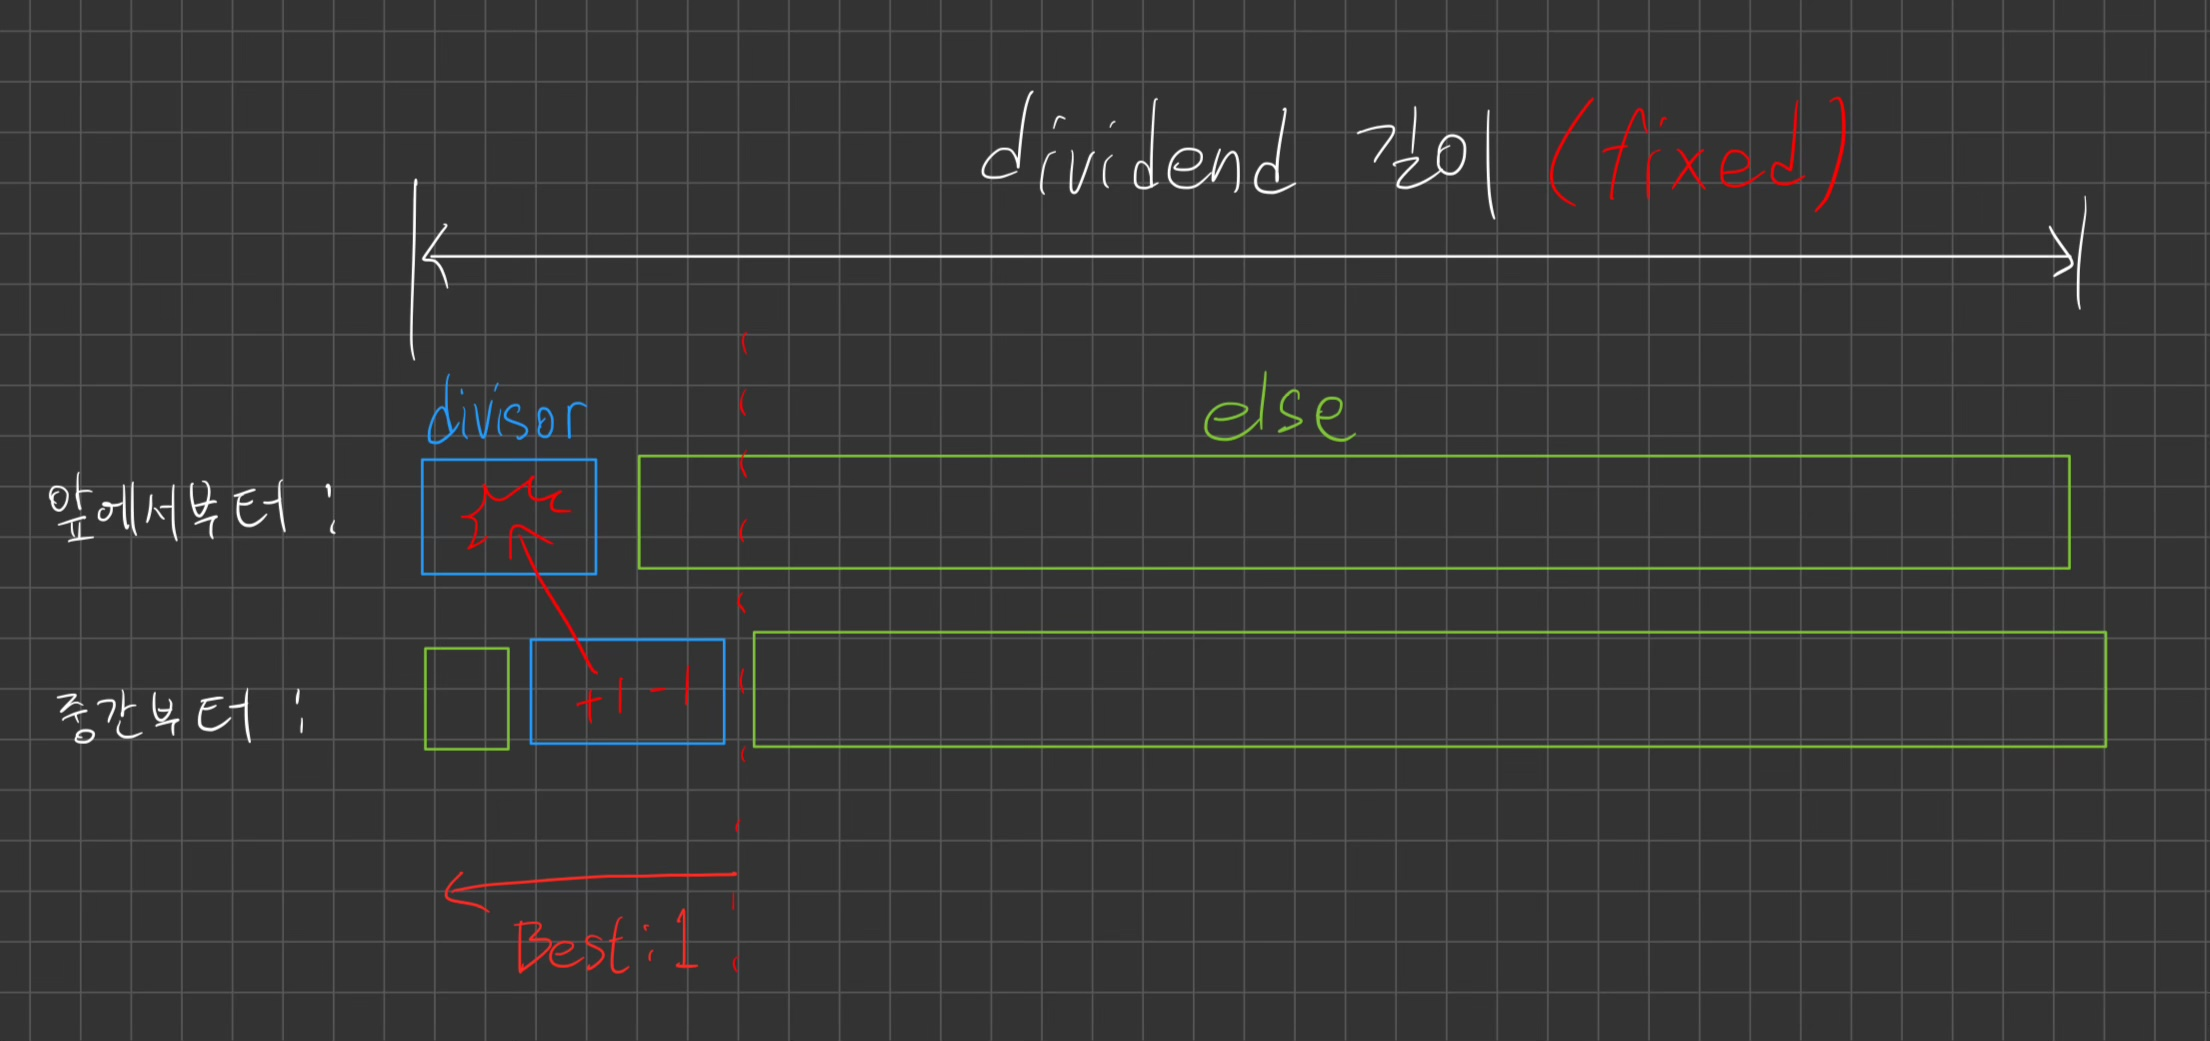 dividend 길이 (fixed)
divisor
else
앞에서부터 :
중간부터 :
+1 -1
Best : 1